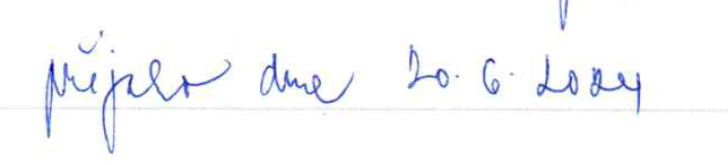 přijato dne 20. 6. 2024